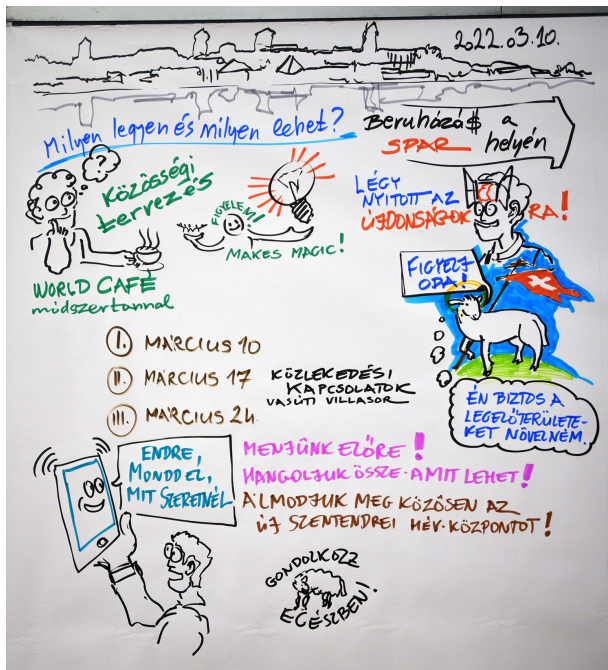 2022.03.10.
Milyen legyen és milyen lehet?
Beruházá$ a
SPAR helyén
Közösségi
tervezés
FIGYELEM!
MAKES MAGIC!
LÉGY
NYITOTT AZ
ÚJDONSÁGOK
RA!
WORLD CAFÉ
módszertannal
FIGYELJ
ODA!
I. MÁRCIUS 10
II. MÁRCIUS 17
III. MÁRCIUS 24
KÖZLEKEDÉSI
KAPCSOLATOK
VASÚTI VILLASOR
ÉN BIZTOS A
LEGELŐTERÜLETE-
KET NÖVELNÉM.
ENDRE,
MONDD EL,
MIT SZERETNÉL
MENJÜNK ELŐRE!
HANGOLJUK ÖSSZE-AMIT LEHET!
ÁLMODJUK MEG KÖZÖSEN AZ
ÚJ SZENTENDREI HÉV-KÖZPONTOT!
GONDOLKOZZ
EGÉSZBEN!